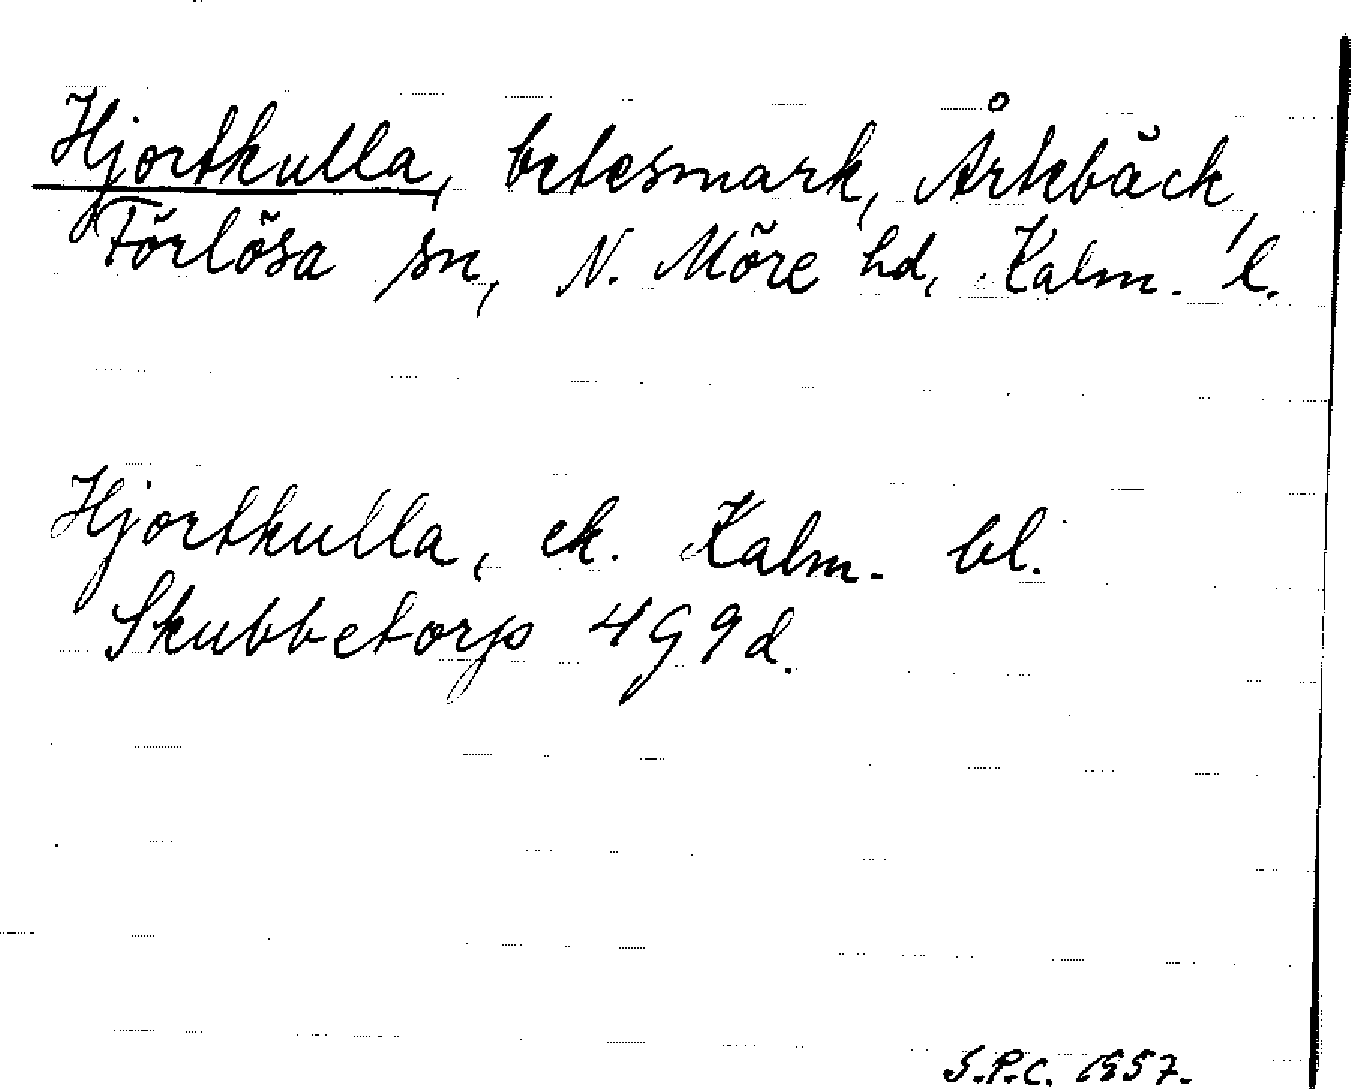 Hjortkulla, betesmark, Årtebäck,
Förlösa sn, N. Möre hd, Kalm. l.
Hjortkulla, ek. Kalm. bl.
Skubbetorp 4G9d.
S.P.C. 1957.